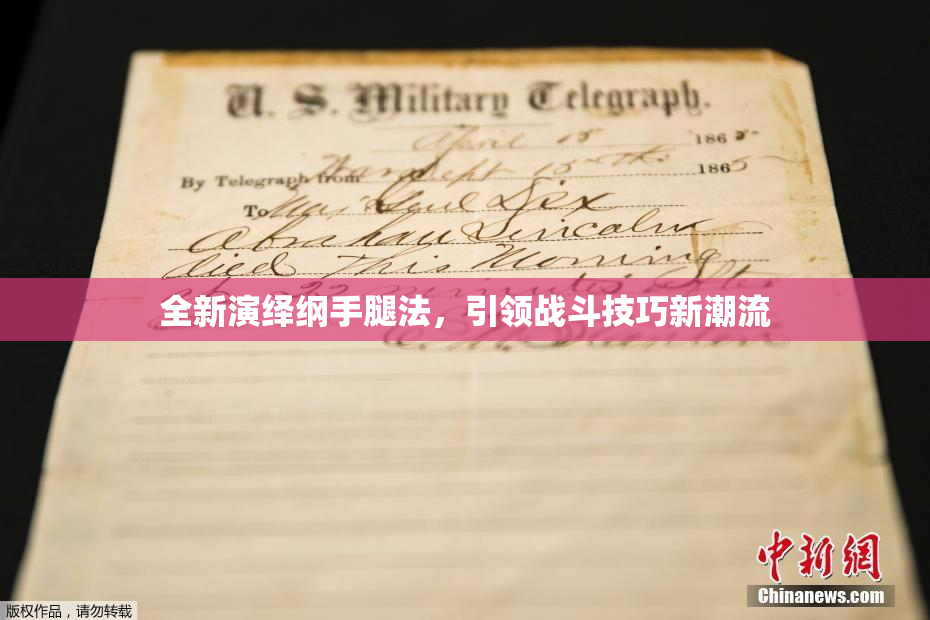 U. S. Military Telegraph.
April 15 1865
By Telegraph from War Dept 15th 1865
To Maj Genl Dix
Abraham Lincoln
died This Morning
at 22 minutes after
全新演绎纲手腿法，引领战斗技巧新潮流
E. M. Stanton
中新网
Chinanews.com
版权作品，请勿转载